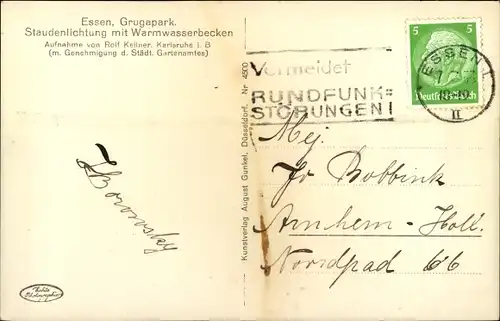 Essen, Grugapark.
Staudenlichtung mit Warmwasserbecken
Aufnahme von Rolf Kellner, Karlsruhe i. B
(m. Genehmigung d. Städt. Gartenamtes)
Kunstverlag August Gunkel, Düsseldorf. Nr 4500
Vermeidet
RUNDFUNK=
STÖRUNGEN!
5 5
Deutsches Reich
ESSEN 1
II
Mej.
Jo Bobbink
Arnhem-Holl.
Noordpad 66
Echte
Photographie